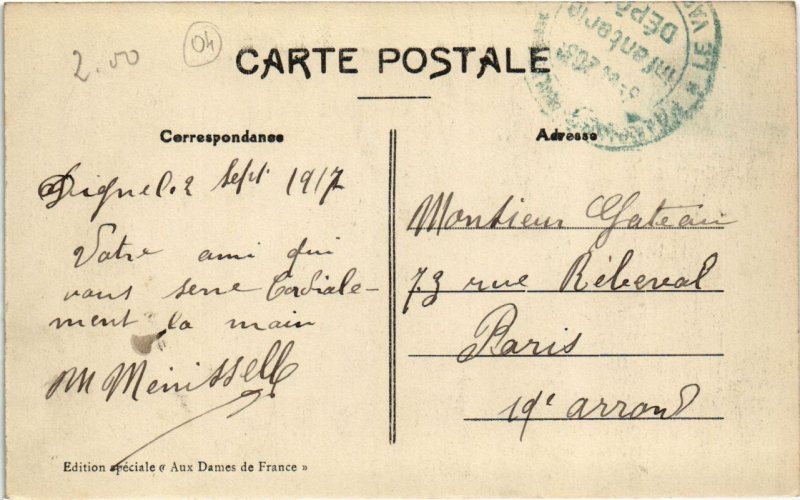 2.00
04
CARTE POSTALE
Correspondance
Adresse
Digne le 2 Sept 1917
Votre ami qui
vous serre Cordiale-
ment la main
M Menissell
Monsieur Gateau
73 rue Rébeval
Paris
19e arrond
Edition spéciale « Aux Dames de France »
Infanterie
DÉPÔ
LE VA